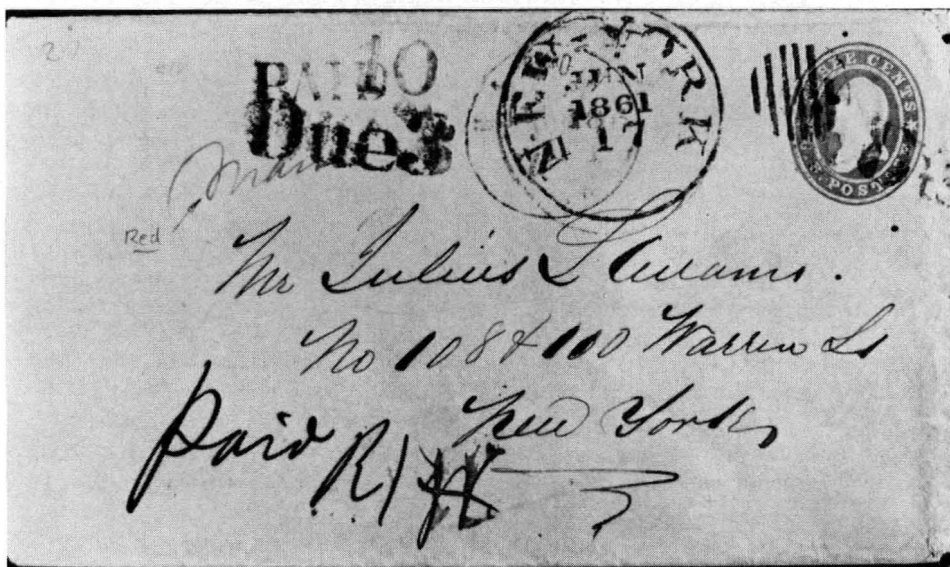 PAID 10
Due 3
NEW YORK
JUN
1861
17
THREE CENTS
U.S. POSTAGE
Red
Mr Julius L Adams.
No 108 & 100 Warren St
New York
Paid